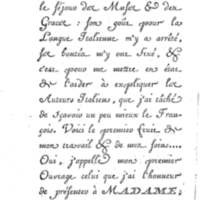 le séjour des Muses & des
Graces : son goût pour la
Langue Italienne m'y a arrêté,
& c'est pour me mettre en état
de l'aider à expliquer les
Auteurs Italiens, que j'ai tâché
de sçavoir un peu mieux le Fran-
çois. Voici le premier fruit de
mon travail & de mes soins....
Oui, j'appelle mon premier
Ouvrage celui que j'ai l'honneur
de présenter à MADAME;